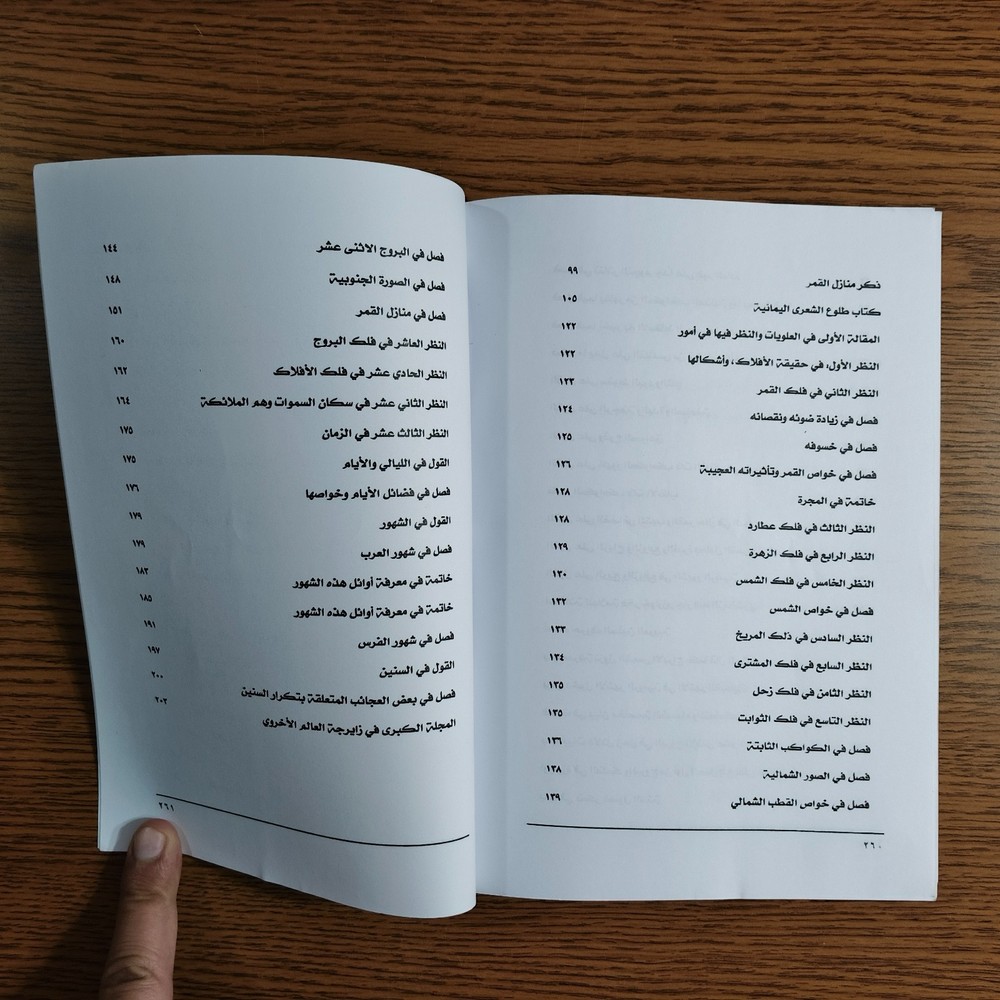 ذكر منازل القمر ٩٩
كتاب طلوع الشعرى اليمانية ١٠٥
المقالة الأولى في العلويات والنظر فيها في أمور ١٢٢
النظر الأول، في حقيقة الأفلاك، وأشكالها ١٢٢
النظر الثاني في فلك القمر ١٢٣
فصل في زيادة ضوئه ونقصانه ١٢٤
فصل في خسوفه ١٢٥
فصل في خواص القمر وتأثيراته العجيبة ١٢٦
خاتمة في المجرة ١٢٨
النظر الثالث في فلك عطارد ١٢٨
النظر الرابع في فلك الزهرة ١٢٩
النظر الخامس في فلك الشمس ١٣٠
فصل في خواص الشمس ١٣٢
النظر السادس في ذلك المريخ ١٣٣
النظر السابع في فلك المشترى ١٣٤
النظر الثامن في فلك زحل ١٣٥
النظر التاسع في فلك الثوابت ١٣٥
فصل في الكواكب الثابتة ١٣٦
فصل في الصور الشمالية ١٣٨
فصل في خواص القطب الشمالي ١٣٩
٢٦٠
فصل في البروج الاثنى عشر ١٤٤
فصل في الصورة الجنوبية ١٤٨
فصل في منازل القمر ١٥١
النظر العاشر في فلك البروج ١٦٠
النظر الحادي عشر في فلك الأفلاك ١٦٢
النظر الثاني عشر في سكان السموات وهم الملائكة ١٦٤
النظر الثالث عشر في الزمان ١٧٥
القول في الليالي والأيام ١٧٥
فصل في فضائل الأيام وخواصها ١٧٦
القول في الشهور ١٧٩
فصل في شهور العرب ١٧٩
خاتمة في معرفة أوائل هذه الشهور ١٨٣
خاتمة في معرفة أوائل هذه الشهور ١٨٥
فصل في شهور الفرس ١٩١
القول في السنين ١٩٧
فصل في بعض العجائب المتعلقة بتكرار السنين ٢٠٠
المجلة الكبرى في زايرجة العالم الأخروي ٢٠٢
٢٦١